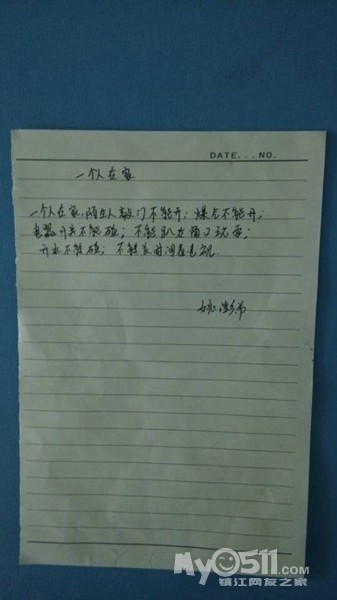 DATE... NO.
一个人在家
一个人在家,陌生人敲门不能开;煤气不能开;
电器开关不能碰;不能趴在窗口玩耍;
开水不能碰;不能长时间看电视。
My0511.com
镇江网友之家